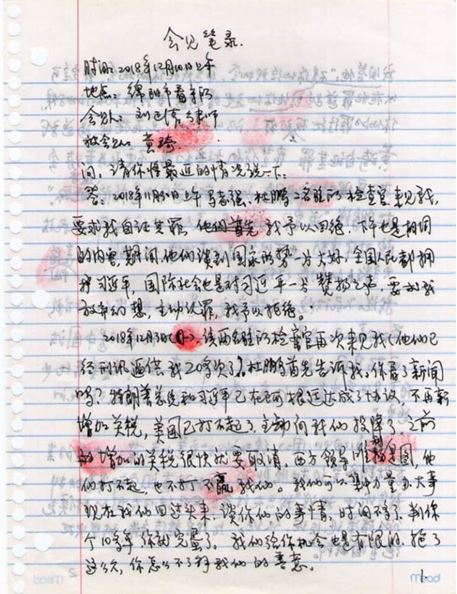 会见笔录.
时间:2018年12月10日上午
地点:绵阳市看守所
会见人:刘正清律师
被会见人:黄琦
问:请你将最近的情况说一下.
答:2018年11月30日上午 杜鹏2名姓的检查官来见我,
要求我自证其罪, 他们首先 我予以回绝. 下午也是相同
的内容,期间他们谈到国际形势一片大好,全国人民都拥
护习近平, 国际社会也是对习近平一片赞扬之声, 要求我
放弃幻想, 主动认罪, 我予以拒绝.
2018年12月3日(周一),该两名姓的检查官再次来见我(他们已
经刑讯逼供我20多次了), 杜鹏首先告诉我, 你看了新闻
吗? 特朗普总统和习近平已在阿根廷达成了协议, 不再新
增加关税, 美国已打不起了, 主动向我们投降了, 之前
的增加的关税很快就要取消. 西方领导 美国, 他
们打不起, 也不打不赢我们. 我们可以集中力量办大事
现在我们回过头来, 谈你们的事情, 时间不多了, 判你
个10多年你就完蛋了. 我们给你机会也是有限的, 拒了
这么久, 你怎么不了解我们的善意.
Mead
2
1